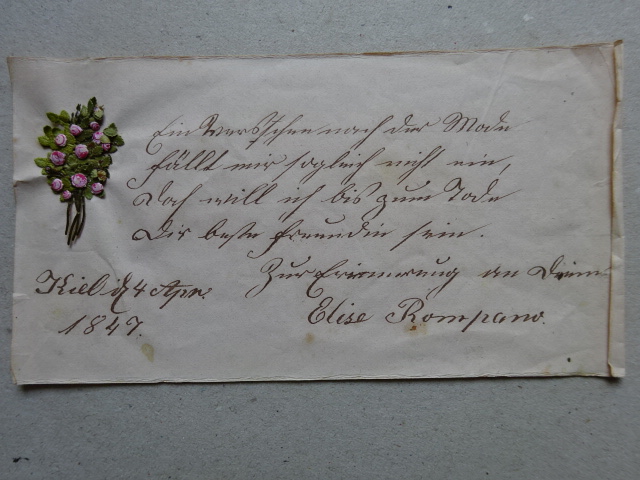 Ein Verschen nach der Mode
fällt mir sogleich nicht ein,
Doch will ich bis zum Tode
Dir beste Freundin sein.
Zur Erinnerung an Deine
Elise Rompano.
Kiel d. 4 Apr.
1847.